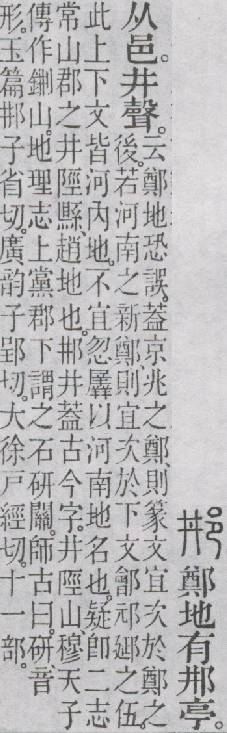 鄭地有邢亭。
从邑。井聲。云鄭地恐誤。蓋京兆之鄭、則篆文宜次於鄭之
後。若河南之新鄭、則宜次於下文鄶邧郔之伍。
此上下文皆河內地。不宜忽羼以河南地名也。疑卽二志
常山郡之井陘縣、趙地也。邢井蓋古今字。井陘山穆天子
傳作鉶山。地理志上黨郡下謂之石研關。師古曰。研、音
形。玉篇邢子省切。廣韵子郢切。大徐戶經切。十一部。